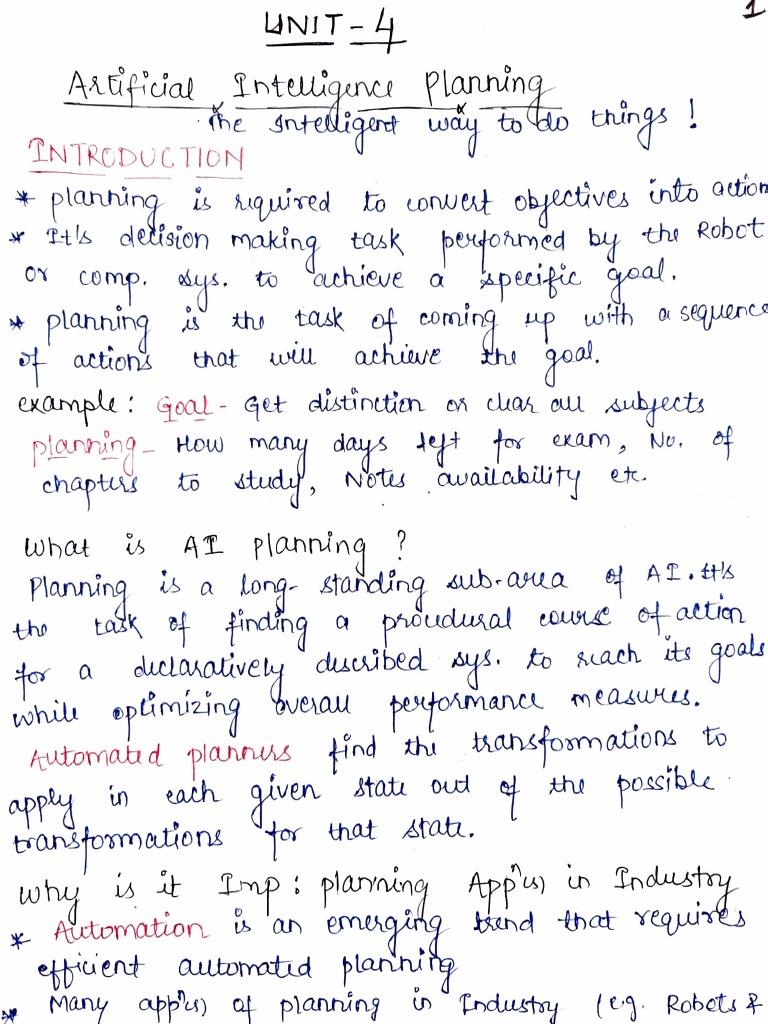 1
UNIT-4
Artificial Intelligence Planning
The Intelligent way to do things !
INTRODUCTION
* planning is required to convert objectives into action
* It's decision making task performed by the Robot
or comp. sys. to achieve a specific goal.
* planning is the task of coming up with a sequence
of actions that will achieve the goal.
example: Goal - Get distinction or clear all subjects
planning - How many days left for exam, No. of
chapters to study, Notes availability etc.
What is AI planning ?
Planning is a long-standing sub-area of AI. It's
the task of finding a procedural course of action
for a declaratively described sys. to reach its goals
while optimizing overall performance measures.
Automated planners find the transformations to
apply in each given state out of the possible
transformations for that state.
Why is it Imp: planning Appⁿ(s) in Industry
* Automation is an emerging trend that requires
efficient automated planning
* Many appⁿ(s) of planning in Industry (e.g. Robots &